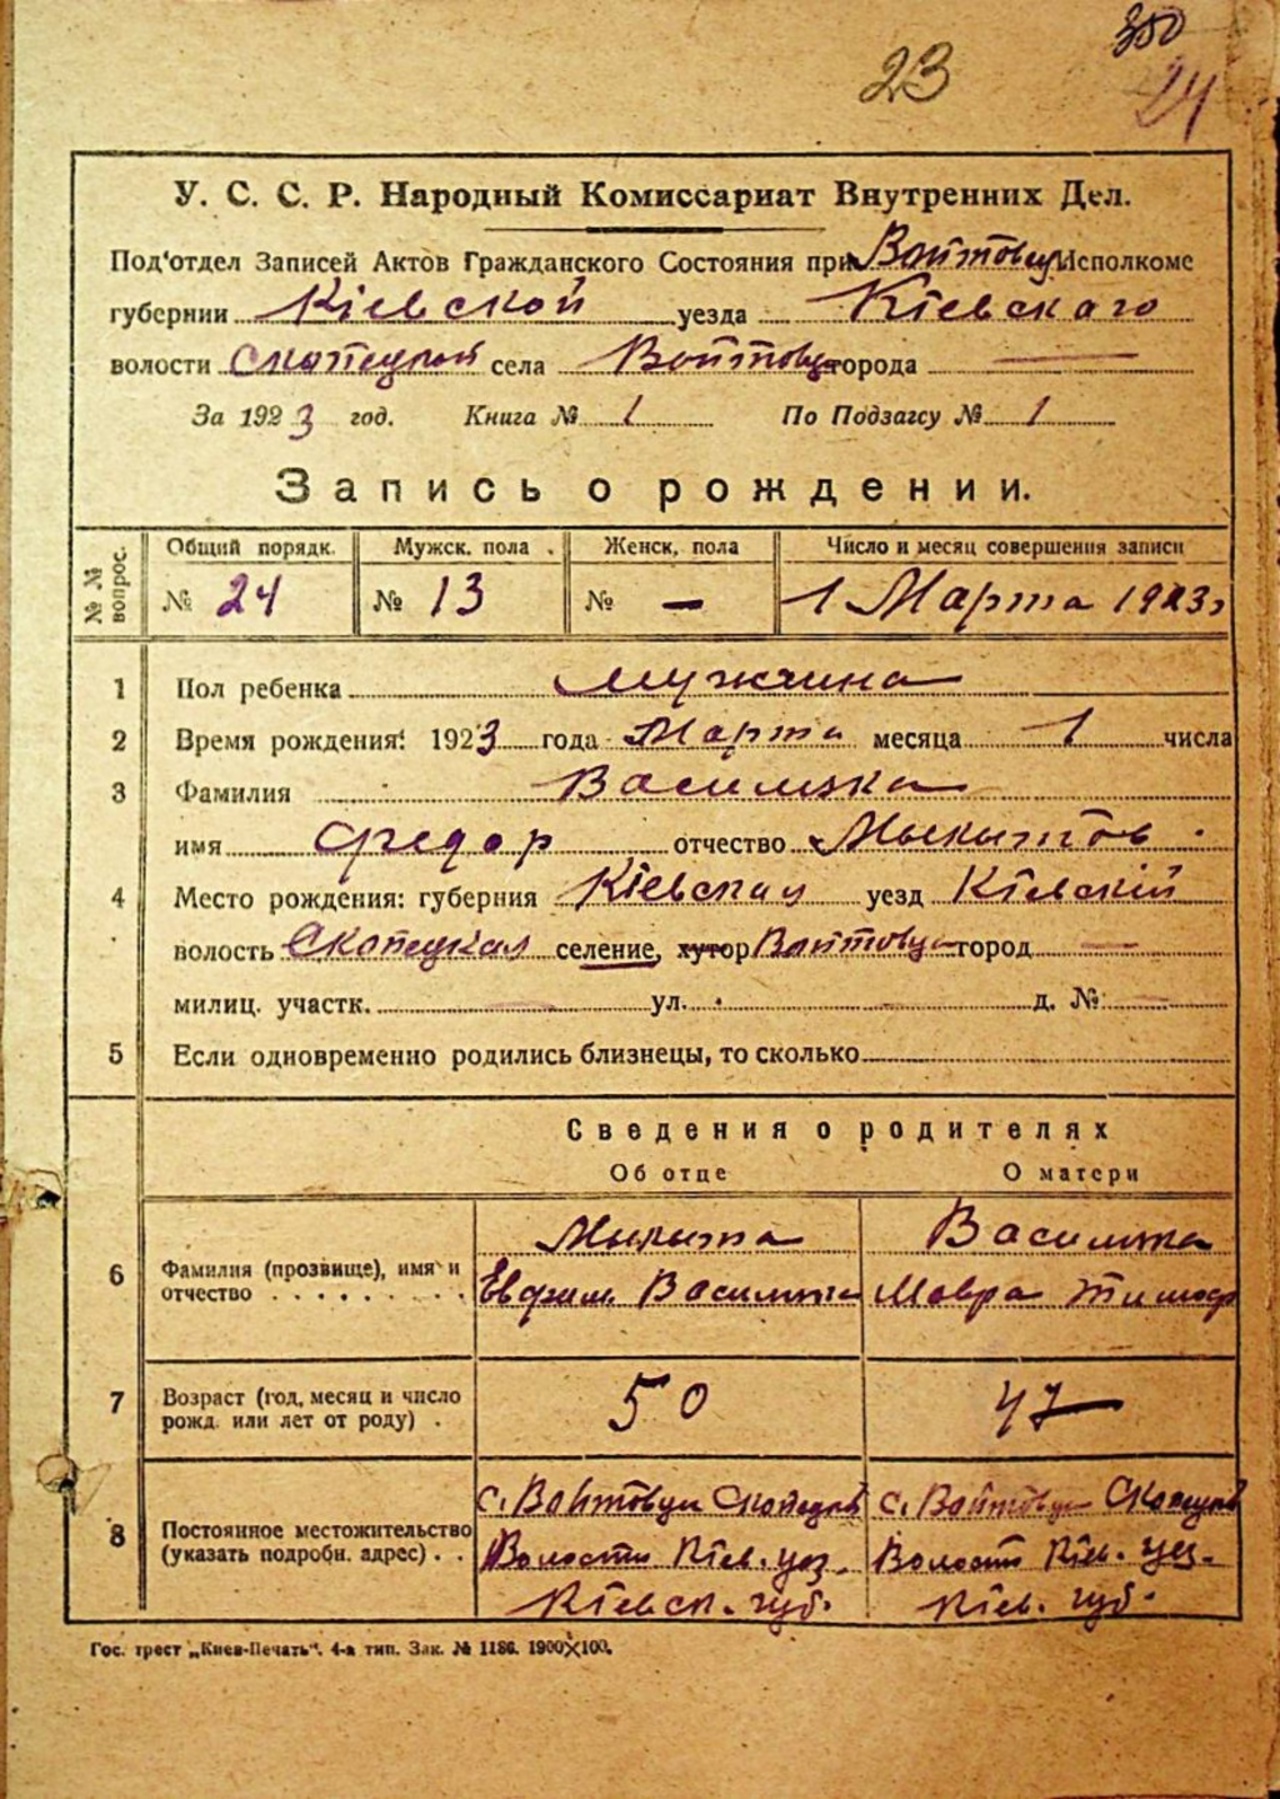 350
23
24
У. С. С. Р. Народный Комиссариат Внутренних Дел.
Под'отдел Записей Актов Гражданского Состояния при Войтовцы Исполкоме
губернии Кіевской уезда Кіевскаго
волости Скопецкой села Войтовцы города —
За 1923 год. Книга № 1 По Подзагсу № 1
Запись о рождении.
№ № вопрос. Общий порядк. Мужск. пола Женск. пола Число и месяц совершения записи
№ 24 № 13 № — 1 Марта 1923
1 Пол ребенка мужчина
2 Время рождения: 1923 года Марта месяца 1 числа
3 Фамилия Василька
имя Федор отчество Мыкытов
4 Место рождения: губерния Кіевская уезд Кіевскій
волость Скопецкая селение, хутор Войтовцы город —
милиц. участк. — ул. — д. № —
5 Если одновременно родились близнецы, то сколько
Сведения о родителях
Об отце О матери
Мыкыта Василька
6 Фамилия (прозвище), имя и отчество Евфим. Василька Мавра Тимоф
7 Возраст (год, месяц и число рожд. или лет от роду) 50 47
с. Войтовцы Скопецкой с. Войтовцы Скопецкой
8 Постоянное местожительство (указать подробн. адрес) Волости Кіев. уез. Волости Кіев. уез.
Кіевск. губ. Кіев. губ.
Гос. трест „Киев-Печать“. 4-а тип. Зак. № 1186. 1900×100.